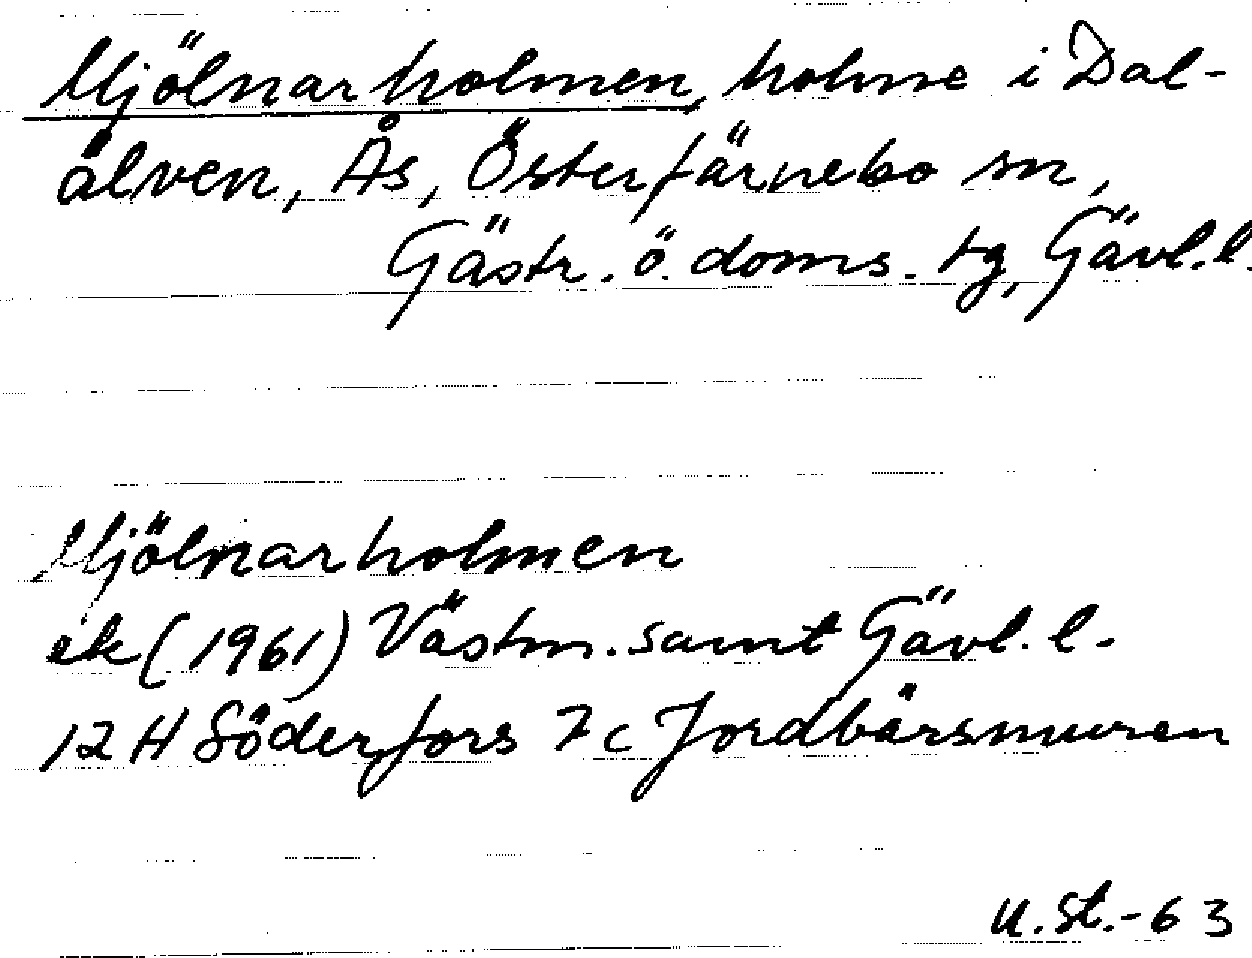 Mjölnarholmen, holme i Dal-
älven, Ås, Österfärnebo sn,
Gästr. ö. doms. tg, Gävl. l.
Mjölnarholmen
ek (1961) Västm. samt Gävl. l.
12 H Söderfors 7c Jordbärsmuren
U. St. -63